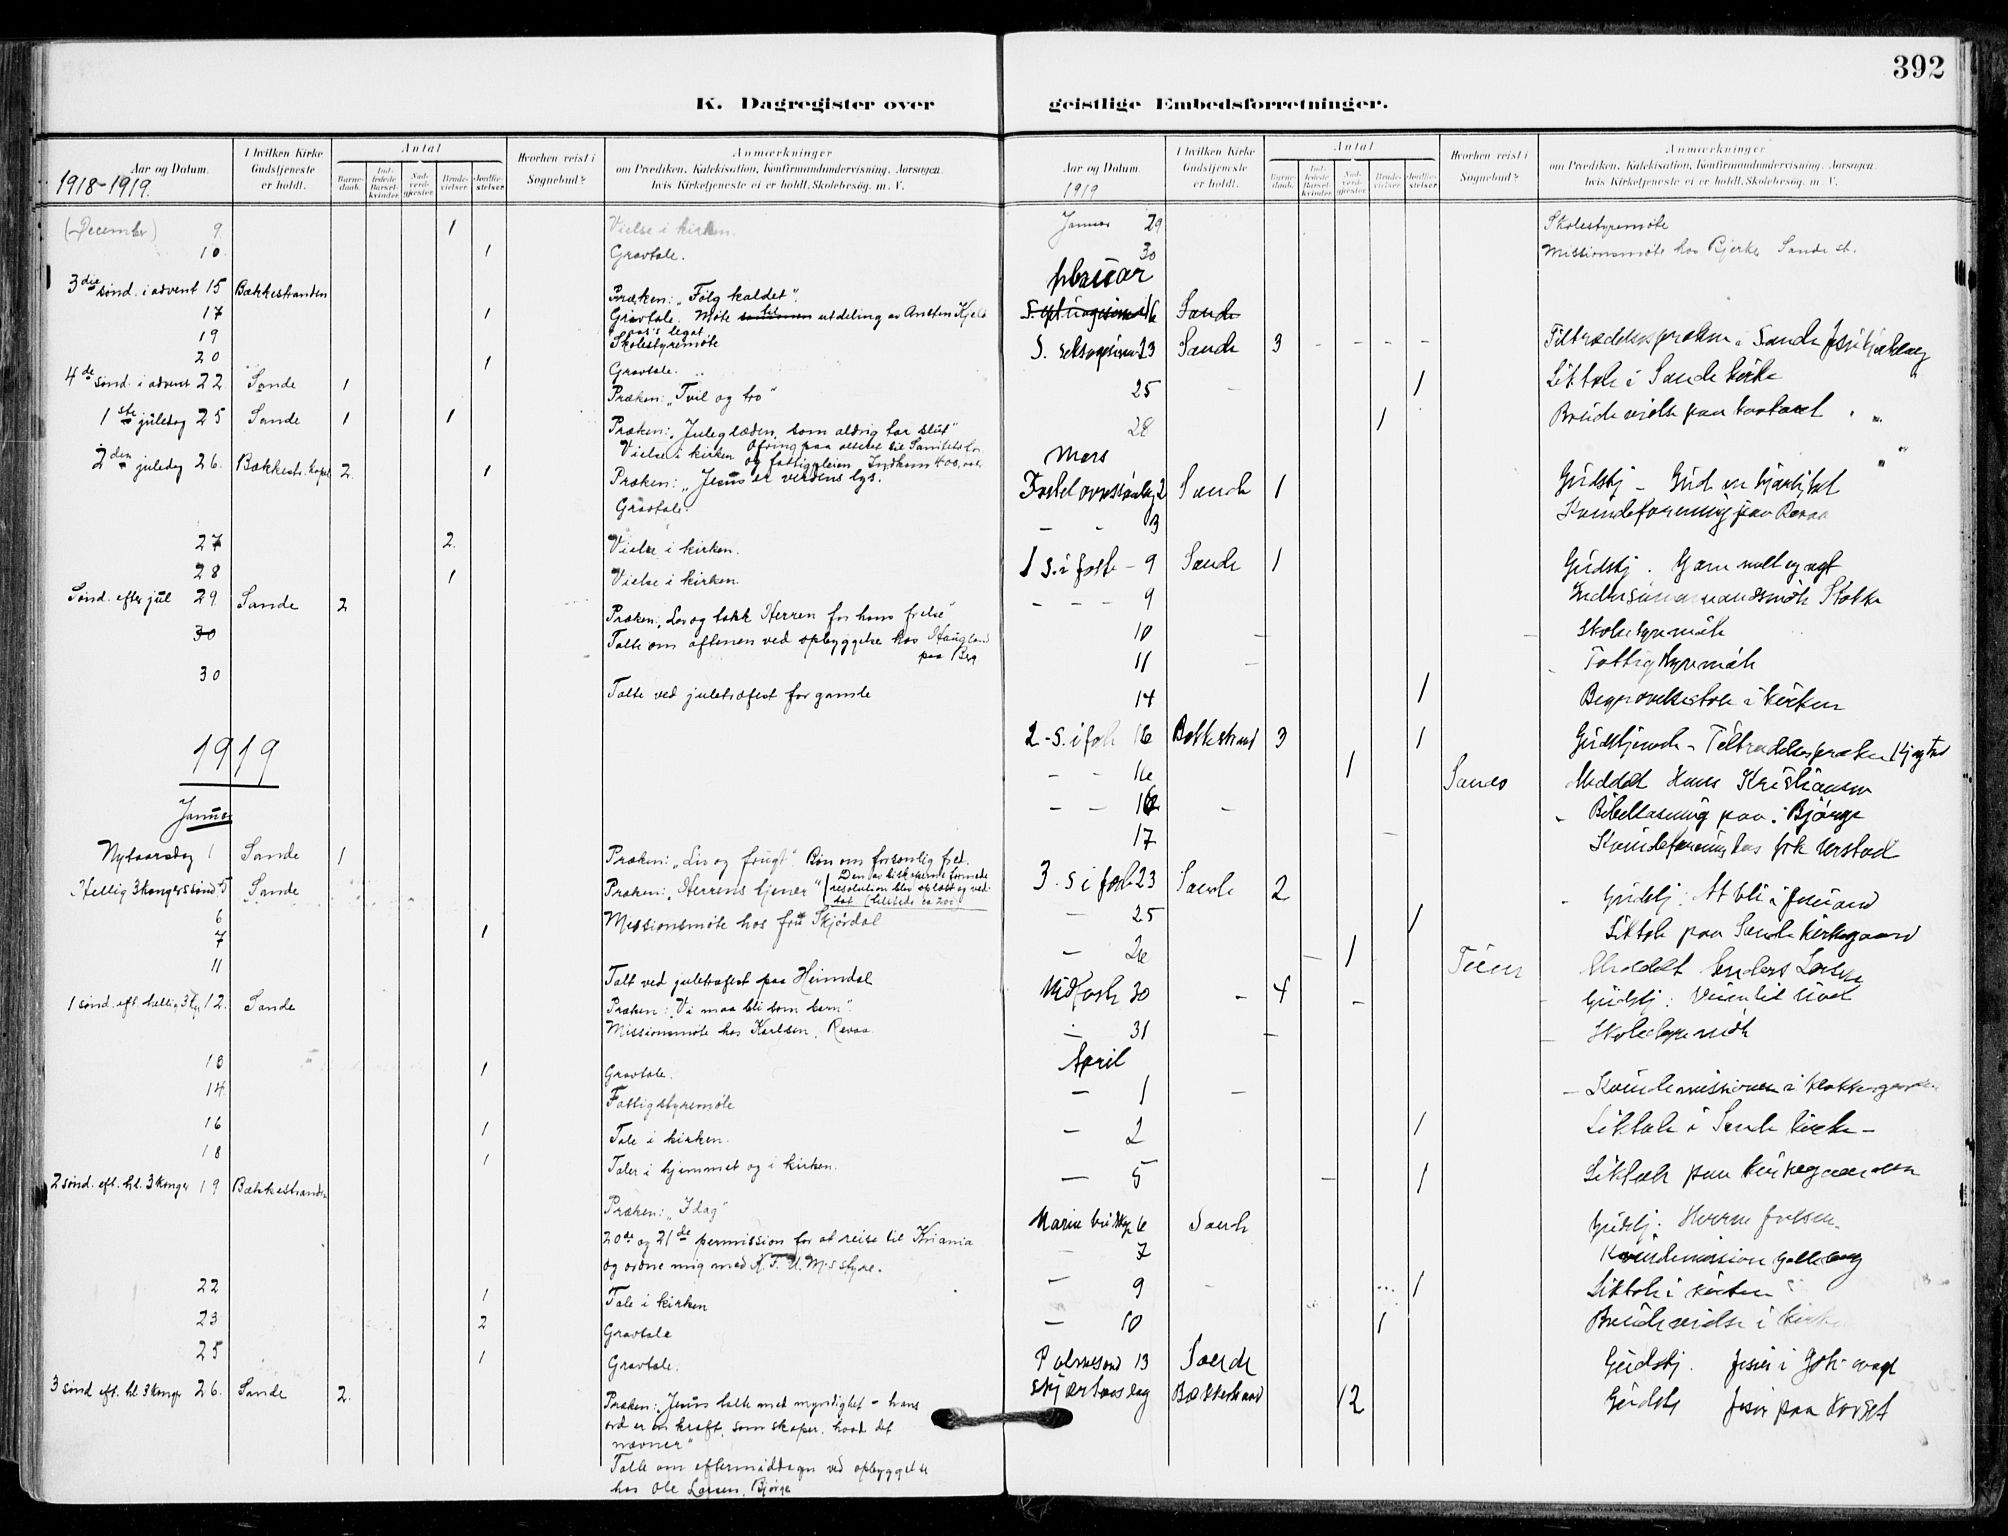 392
K. Dagregister over geistlige Embedsforretninger.
Aar og Datum.
1918-1919.
I hvilken Kirke Gudstjeneste er holdt.
Antal
Barnedaab.
Indledede Barselkvinder.
Nadverdgjester.
Brudevielser.
Jordfæstelser.
Hvorhen reist i Sognebud?
Anmærkninger
om Prædiken, Katekisation, Konfirmandundervisning, Aarsagen
hvis Kirketjeneste ei er holdt, Skolebesøg. m. V.
(December) 9. 1 Vielse i kirken.
10. 1 Gravtale.
3die sønd. i advent 15 Bækkestranden Præken: „Følg kaldet".
17 1 Gravtale. Møte til utdeling av Ansten Kjel
aas's legat.
19 Skolestyremøte
20 1 Gravtale.
4de sønd. i advent 22 Sande 1 Præken: „Tvil og tro"
1ste juledag 25 Sande 1 1 Præken: „Juleglæden, som aldrig har slut"
Vielse i kirken Ofring paa alteret til Sanitetsfor.
og fattigpleien. Indkom 400,
2den juledag 26. Bækkest. kapel 2. 1 Præken: „Jesus er verdens lys.
Gravtale.
27 2. Vielser i kirken.
28 1 Vielse i kirken.
Sønd. efter jul 29 Sande 2 Præken: „Lov og takk Herren for hans frelse"
30 Talte om aftenen ved opbyggelse hos Haugland
paa Berg
30 Talte ved juletræfest for gamle
1919
Januar
Nytaarsdag 1 Sande 1 Præken: „Liv og frugt". Bøn om forsonlig fred.
Hellig 3 kongers sønd. 5 Sande Præken: „Herrens tjener" (Den av biskoperne formede
resolution blev oplæst og ved-
tat (tilstede ca 200)
6 Missionsmøte hos fru Skjørdal
7 1
11 Talt ved juletræfest paa Heimdal
1 sønd. eft. hellig 3 kg 12. Sande Præken: „Vi maa bli som barn".
Missionsmøte hos Karlsen, Revaa.
13 1 Gravtale.
14. Fattigstyremøte
16 1 Tale i kirken.
18 1 Taler i hjemmet og i kirken.
2 sønd. eft. hl. 3 konger 19 Bækkestranden Præken: „I dag"
20de og 21de permission for at reise til Kriania
og ordne mig med K.F.U.M.s styre.
22 1 Tale i kirken
23 2 Gravtale
25 1 Gravtale.
3 sønd eft. hl 3 konger 26. Sande 2. Præken: „Jesus talte med myndighet - hans
ord er en kraft, som skaper, hvad det
nævner"
Talte om eftermiddagen ved opbyggelse
hos Ole Larsen, Bjørge
Aar og Datum
1919
I hvilken Kirke Gudstjeneste er holdt.
Antal
Barnedaab.
Indledede Barselkvinder.
Nadverdgjester.
Brudevielser.
Jordfæstelser.
Hvorhen reist i Sognebud?
Anmærkninger
om Prædiken, Katekisation, Konfirmandundervisning, Aarsagen
hvis Kirketjeneste ei er holdt, Skolebesøg. m. V.
Januar 29 Skolestyremøte
30 Missionsmøte hos Bjerke Sande st.
februar
S. Septuagesima 16 Sande
S. seksagesima 23 Sande 3 - - - - Tiltrædelsespræken i Sande
25 - 1 Liktale i Sande kirke
28 1 Brudevielse paa kontoret " "
Mars
Fastelavnssøndag 2 Sande 1 Gudstj - Gud er kjærlighet
- - 3 Kvindeforening paa Revaa
1 S. i faste - 9 Sande 1 Gudstj.
- - - 9
10 - Skolestyremøte
11 - Fattigstyremøte
14 1 Begravelsestale i kirken
2 - S. i faste 16 Bækkestrand 3 1 Gudstjeneste - Tiltrædelsespræken
- - 16 1 Sando Meddelt Hans Kristiansen
- - 16 - Bibellæsning paa Bjørge
17 Kvindeforening hos
3. S i faste 23 Sande 2 Gudstj. At bli i Jesu ord
- 25 1 Liktale paa Sande kirkegaard
- 26 1 Meddelt Anders Larsen
Midfaste 30 - 4 - Gudstj:
- 31 - Skolestyremøte
April
- 1 - Kvindemissionen i
- 2 1 Liktale i Sande kirke -
- 5 - 1 Liktale paa kirkegaarden
Marie budskp 6 Sande Gudstj. Herren frelser.
- 7 Kvindemission Galleberg
- 9 - 1 Liktale i kirken
- 10 1 Brudevielse i kirken
Palmesønd 13 Sande Gudstj. Jesus i
Skjærtorsdag Bækkestrand 12 Gudstj Jesus paa korset